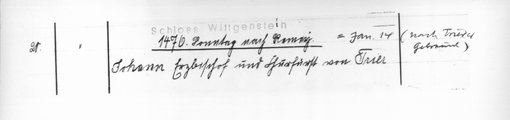 Schloss Wittgenstein
21. " 1476. Sonntag nach Remig. = Jan. 14 (nach Trierer Gebrauch)
Johann Erzbischof und Churfürst von Trier